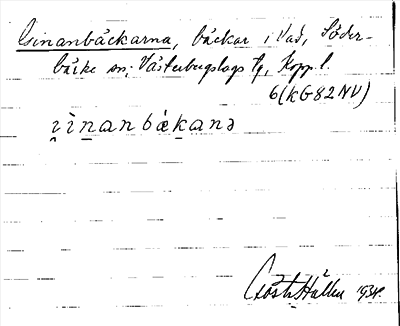 Ginanbäckarna, bäckar i Vad, Söder-
bärke sn; Västerbergslags tg, Kopp. l.
6(KG82NV)
i̯ìnanbǽkanə
Gösta Hallen 1931.